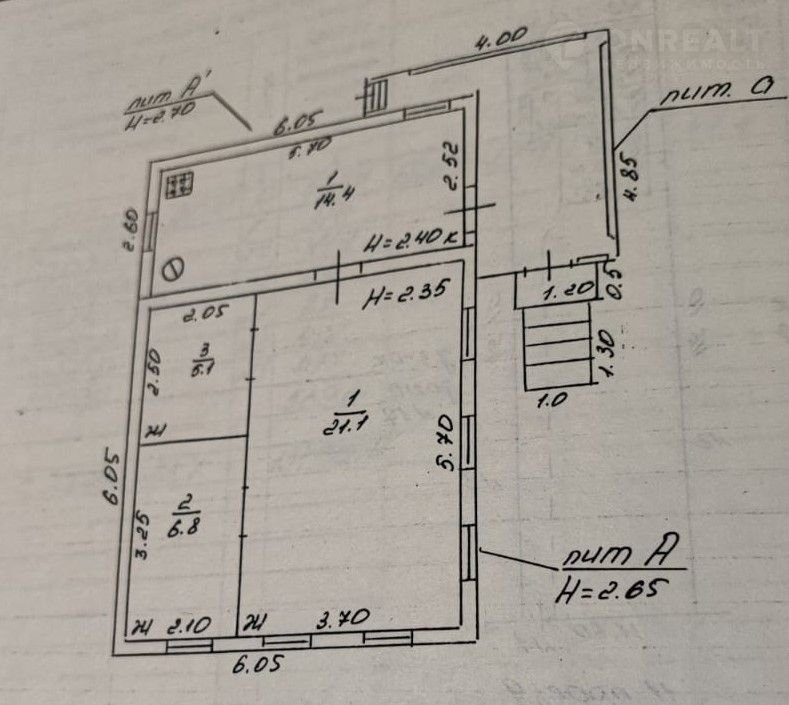 ONREALT
НЕДВИЖИМОСТЬ
4.00
лит А'
H=2.70
6.05
5.70
лит. а
1
14.4
2.52
4.85
2.60
H=2.40 к
H=2.35
1.20
0.5
2.05
3
5.1
2.50
1.30
1.0
1
21.1
Ж
5.70
6.05
2
6.8
3.25
лит А
H=2.65
Ж
2.10
Ж
3.70
6.05